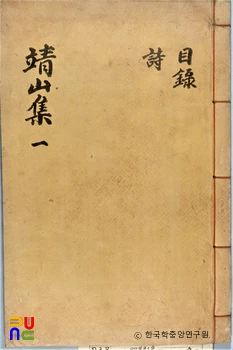 目錄
詩
靖山集 一
© 한국학중앙연구원